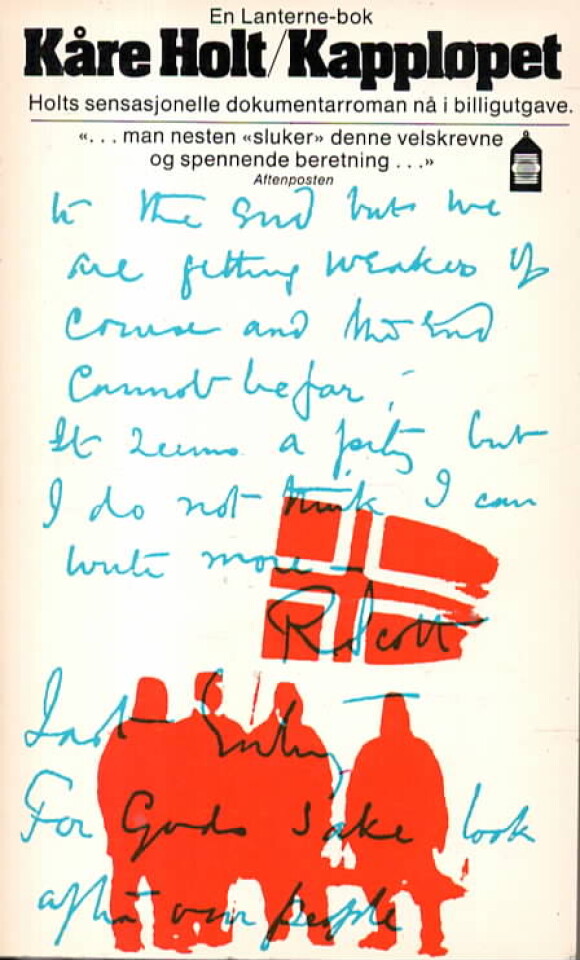 En Lanterne-bok
Kåre Holt/Kappløpet
Holts sensasjonelle dokumentarroman nå i billigutgave.
«. . . man nesten «sluker» denne velskrevne
og spennende beretning . . .»
Aftenposten
to the end but we
are getting weaker of
course and the end
cannot be far,
It seems a pity but
I do not think I can
write more –
R Scott
Last Entry
For Gods sake look
after our people